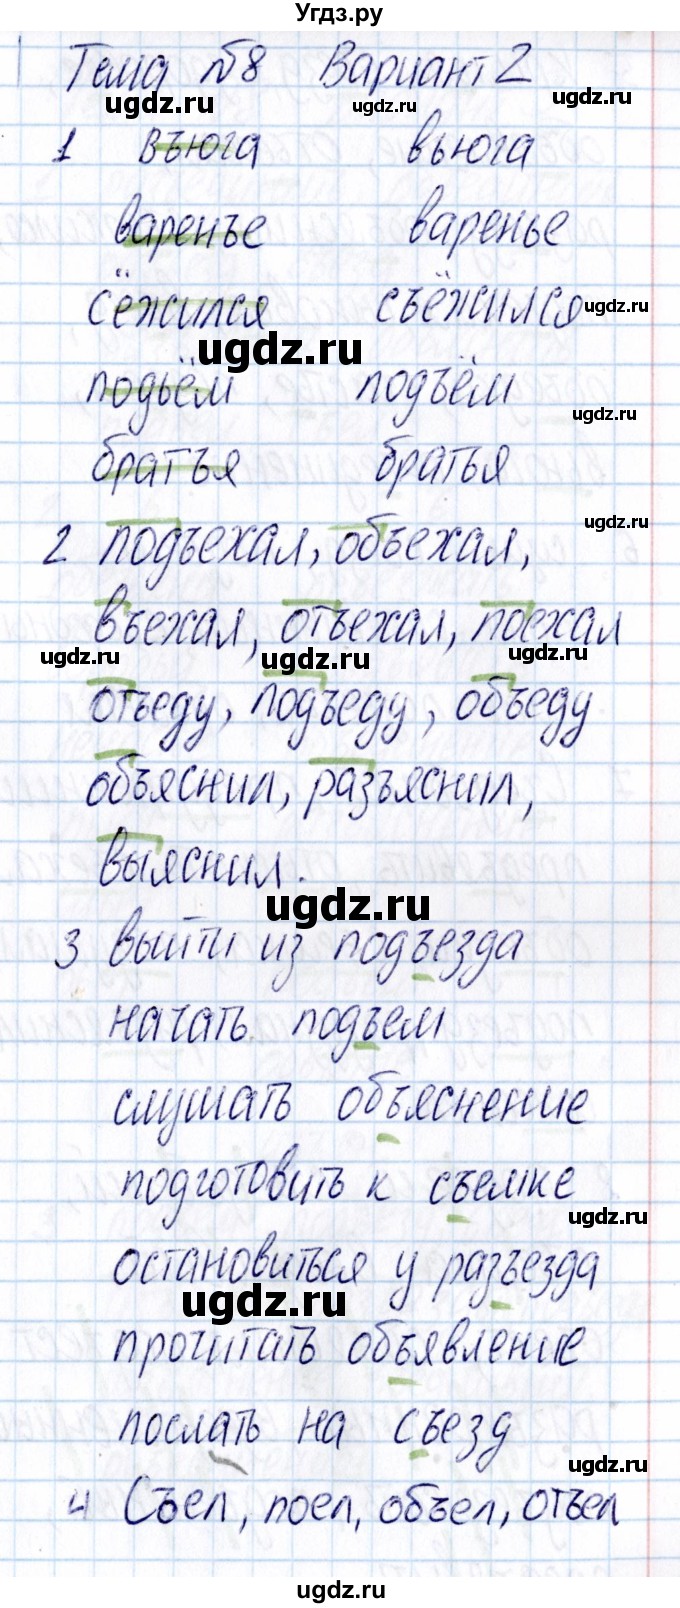 Угдз.ру
Тема №8 Вариант 2
ugdz.ru ugdz.ru ugdz.ru
1 въюга вьюга
варенъе варенье
сёжился съёжился
ugdz.ru ugdz.ru
подьём подъём
ugdz.ru
братъя братья
2 подъехал, объехал,
ugdz.ru
въехал, отъехал, поехал
ugdz.ru ugdz.ru ugdz.ru
отъеду, подъеду, объеду
объяснил, разъяснил,
выяснил.
ugdz.ru
3 выйти из подъезда
начать подъем
слушать объяснение
подготовить к съемке
ugdz.ru
остановиться у разъезда
ugdz.ru
прочитать объявление
послать на съезд
ugdz.ru
4 Съел, поел, объел, отъел
ugdz.ru